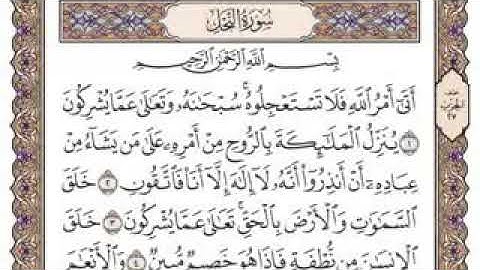 سُورَةُ النَّحْلِ
بِسْمِ اللَّهِ الرَّحْمَٰنِ الرَّحِيمِ
أَتَىٰٓ أَمْرُ ٱللَّهِ فَلَا تَسْتَعْجِلُوهُ ۚ سُبْحَـٰنَهُۥ وَتَعَـٰلَىٰ عَمَّا يُشْرِكُونَ
﴿١﴾ يُنَزِّلُ ٱلْمَلَـٰٓئِكَةَ بِٱلرُّوحِ مِنْ أَمْرِهِۦ عَلَىٰ مَن يَشَآءُ مِنْ
عِبَادِهِۦٓ أَنْ أَنذِرُوٓا۟ أَنَّهُۥ لَآ إِلَـٰهَ إِلَّآ أَنَا۠ فَٱتَّقُونِ ﴿٢﴾ خَلَقَ
ٱلسَّمَـٰوَٰتِ وَٱلْأَرْضَ بِٱلْحَقِّ ۚ تَعَـٰلَىٰ عَمَّا يُشْرِكُونَ ﴿٣﴾ خَلَقَ
ٱلْإِنسَـٰنَ مِن نُّطْفَةٍ فَإِذَا هُوَ خَصِيمٌ مُّبِينٌ ﴿٤﴾ وَٱلْأَنْعَـٰمَ